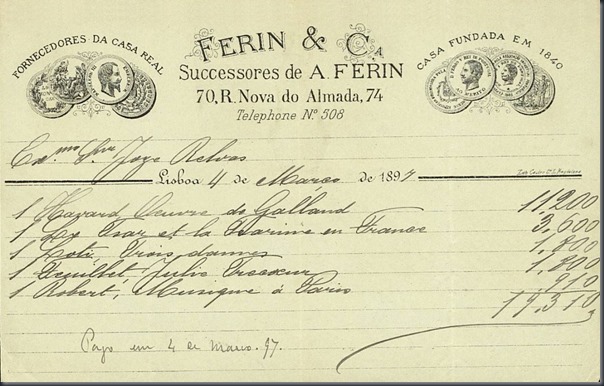 FORNECEDORES DA CASA REAL
FERIN & C.A
CASA FUNDADA EM 1840
Successores de A. FERIN
70, R. Nova do Almada, 74
Telephone Nº 508
Exmo Snr Jorge Relvas
Lisboa 4 de Março de 1897
1 Havard Oeuvre de Galland 11,200
1 Le Tsar et la Tsarine en France 3,600
1 Loti, Trois dames 1,800
1 Feuillet Julie 1,800
1 Robert, Musique à Paris 910
19,310
Pago em 4 de Março. 97.